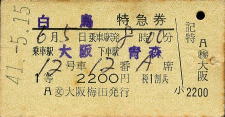 白鳥 特急券
6月5日 乗車駅発 8時00分
乗車駅 大阪 下車駅 青森
12号車 12番A席
1等 2200円
A 交 大阪梅田発行
41.-5.15
記特
A 大阪
小 2200